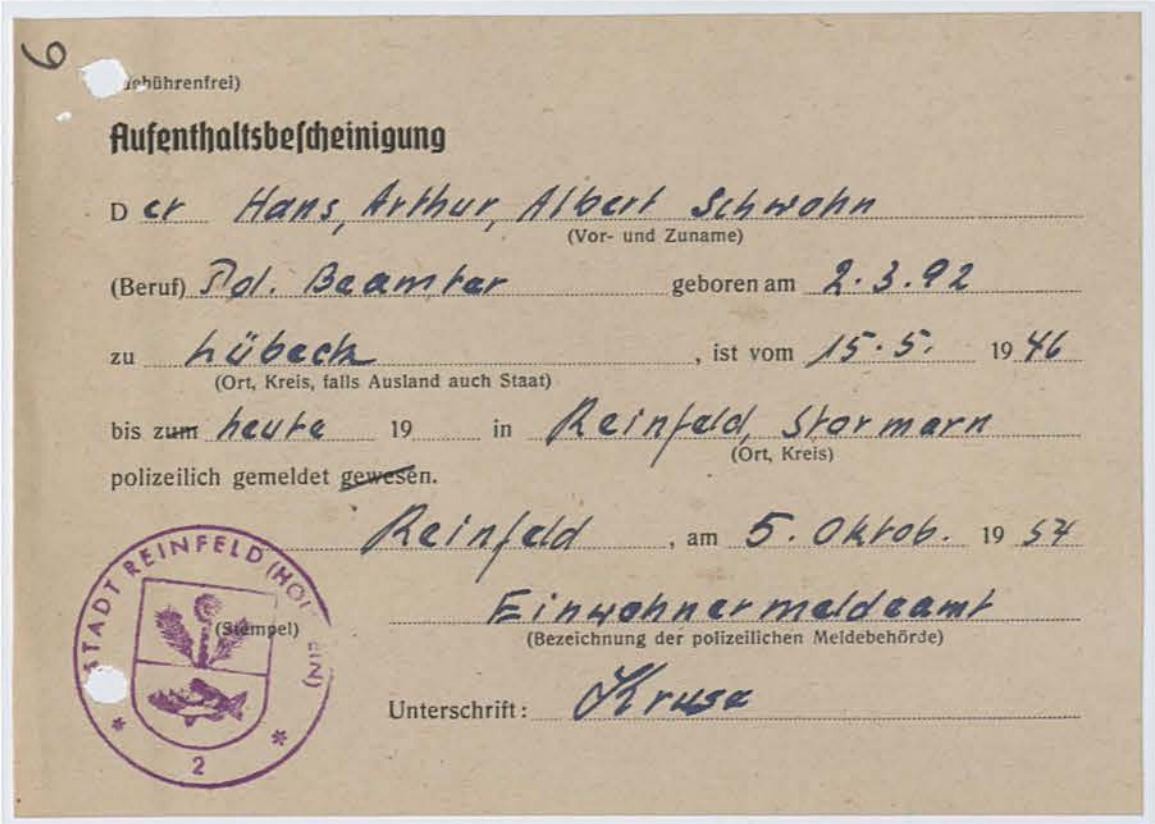 6
gebührenfrei)
Aufenthaltsbescheinigung
Der Hans, Arthur, Albert Schwohn
(Vor- und Zuname)
(Beruf) Pol. Beamter geboren am 2.3.92
zu Lübeck, ist vom 15.5. 1946
(Ort, Kreis, falls Ausland auch Staat)
bis zum heute 19 in Reinfeld, Stormarn
(Ort, Kreis)
polizeilich gemeldet gewesen.
Reinfeld, am 5. Oktob. 1954
STADT REINFELD (HOLSTEIN)
(Stempel)
* 2 *
Einwohnermeldeamt
(Bezeichnung der polizeilichen Meldebehörde)
Unterschrift: Kruse